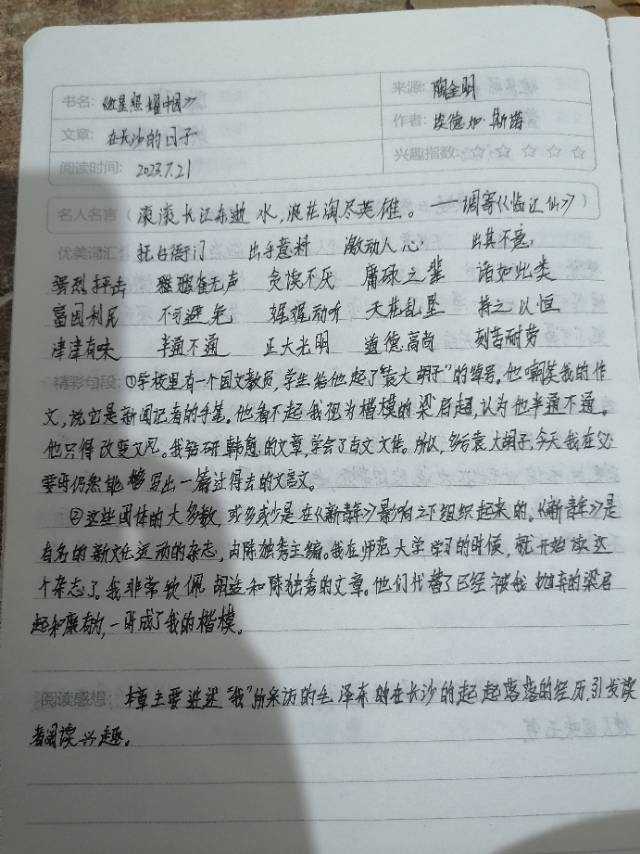 书名: 《红星照耀中国》 来源: 陶金明
文章: 在长沙的日子 作者: 埃德加·斯诺
阅读时间: 2023.7.21 兴趣指数: ☆ ☆ ☆ ☆ ☆
名人名言 ( 滚滚长江东逝水,浪花淘尽英雄。——调寄《临江仙》 )
优美词汇 抚台衙门 出乎意料 激动人心 出其不意
猛烈抨击 鸦雀无声 贪误不厌 庸碌之辈 诸如此类
富国利民 不可避免 娓娓动听 天花乱坠 持之以恒
津津有味 半通不通 正大光明 道德高尚 刻苦耐劳
精彩句段: ①学校里有一个国文教员,学生给他起了“袁大胡子”的绰号。他嘲笑我的作
文,说它是新闻记者的手笔。他看不起我视为楷模的梁启超,认为他半通不通。
他只得改变文风。我钻研韩愈的文章,学会了古文文体。所以,多亏袁大胡子,今天我在必
要时仍然能够写出一篇过得去的文言文。
②这些团体的大多数,或多或少是在《新青年》影响之下组织起来的。《新青年》是
有名的新文化运动的杂志,由陈独秀主编。我在师范大学学习的时候,就开始读这
个杂志了。我非常钦佩胡适和陈独秀的文章。他们代替了已经被我抛弃的梁启
超和康有为,一时成了我的楷模。
阅读感想: 本章主要讲述“我”所采访的毛泽东的在长沙的起起落落的经历,引发读
者阅读兴趣。